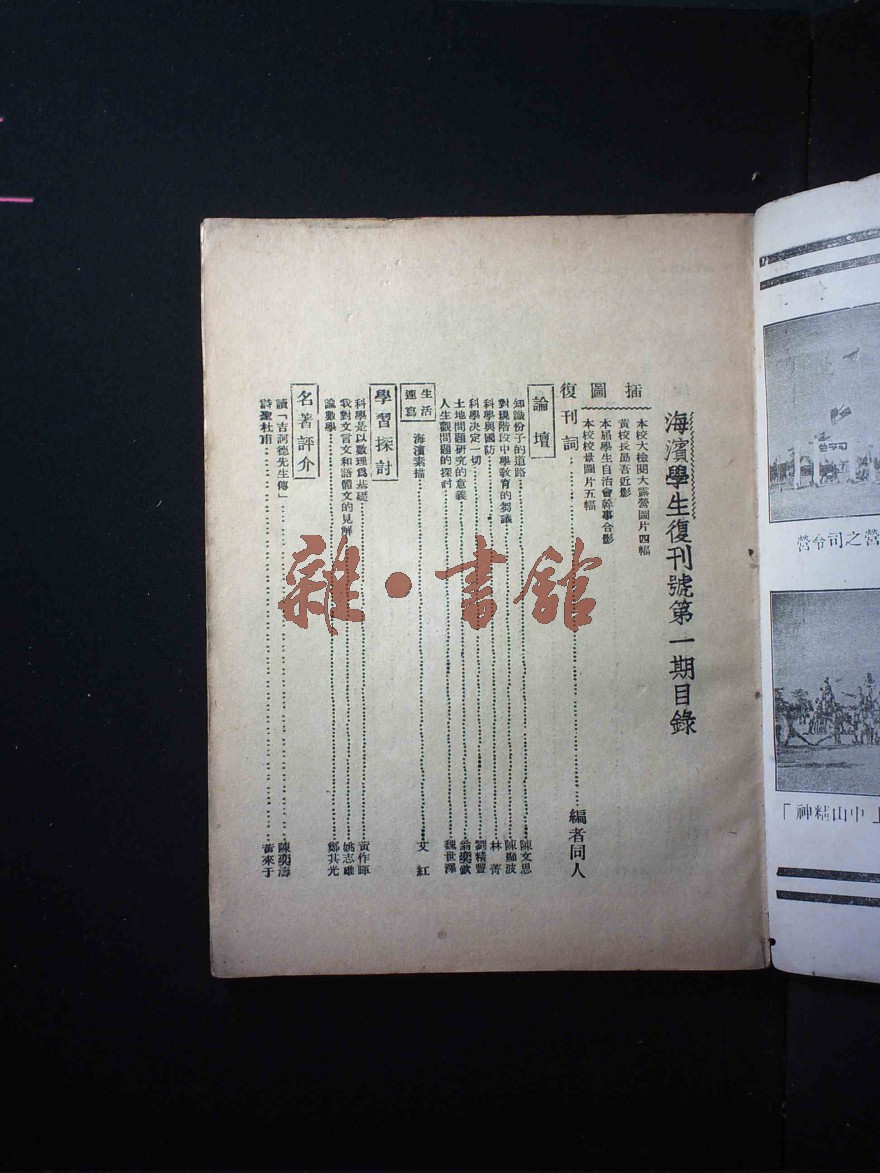 海濱學生復刊號第一期目錄
插圖
本校大檢閱大露營圖片四幅
黃校長勗吾近影
本屆學生自治會幹事合影
本校校景圖片五幅
復刊詞 編者同人
論壇
知識份子的道路 陳文思
對現階段中學教育的芻議 陳顯波
科學與國防 林菁
科學決定一切 劉精豐
土地問題研究的意義 翁奕欽
人生觀問題的探討 魏世澤
生活速寫
海濱素描 文紅
學習探討
科學是以數理爲基礎 黃作暉
我對文言文和語體文的見解 姚志雄
論數學 鄭其光
名著評介
讀「吉訶德先生傳」 陳奕濤
詩聖杜甫 黃來于
雜·書館
營之司令營
「中山精神」